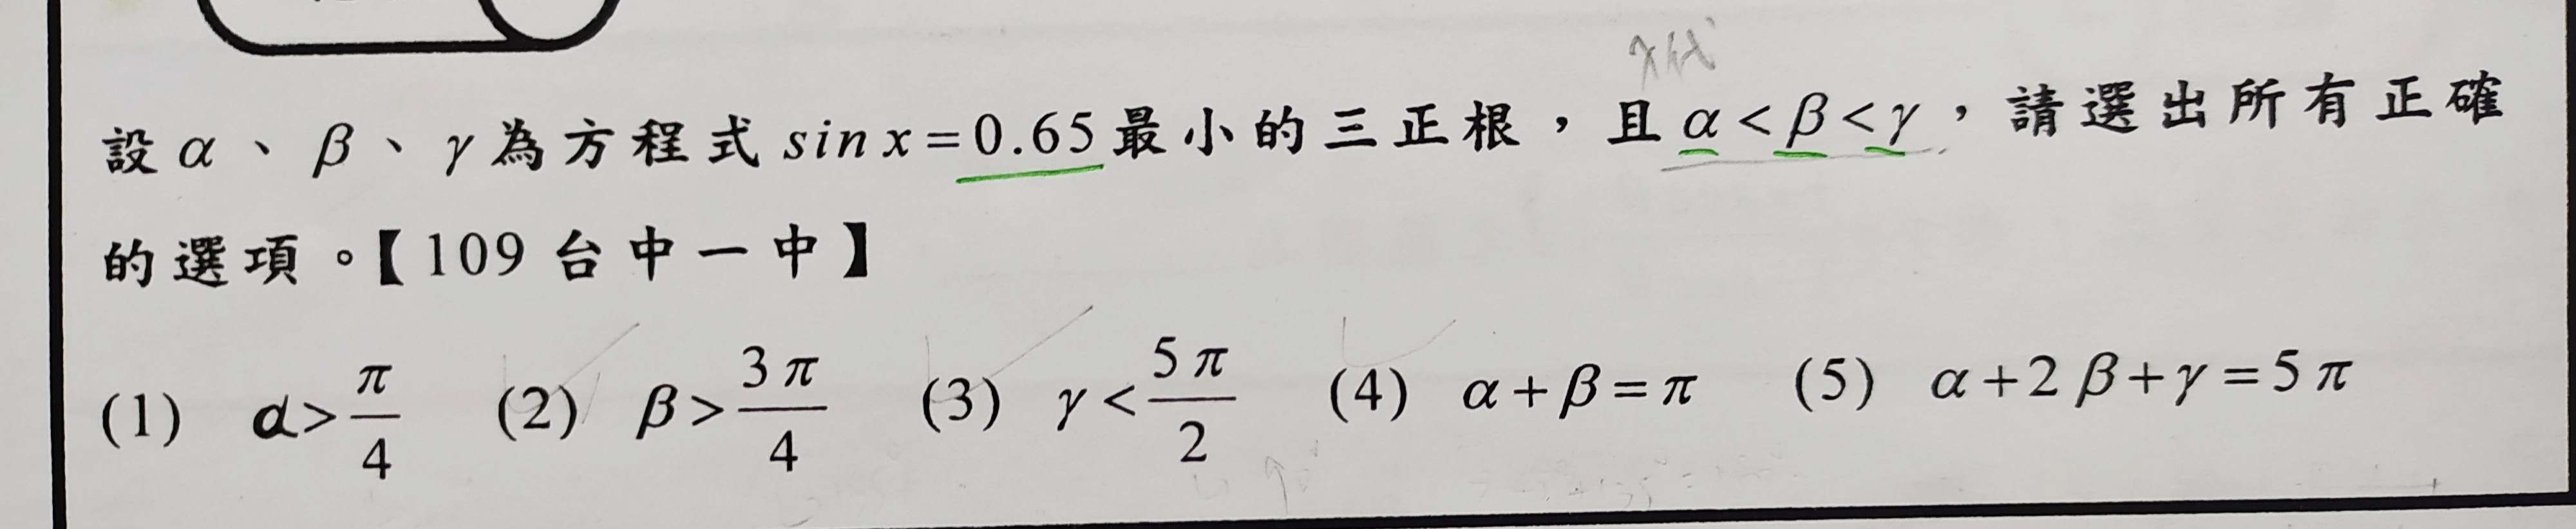 設 α、β、γ 為方程式 sin x = 0.65 最小的三正根，且 α < β < γ，請選出所有正確
的選項。【109 台中一中】
(1) α > π/4 (2) β > 3π/4 (3) γ < 5π/2 (4) α + β = π (5) α + 2β + γ = 5π